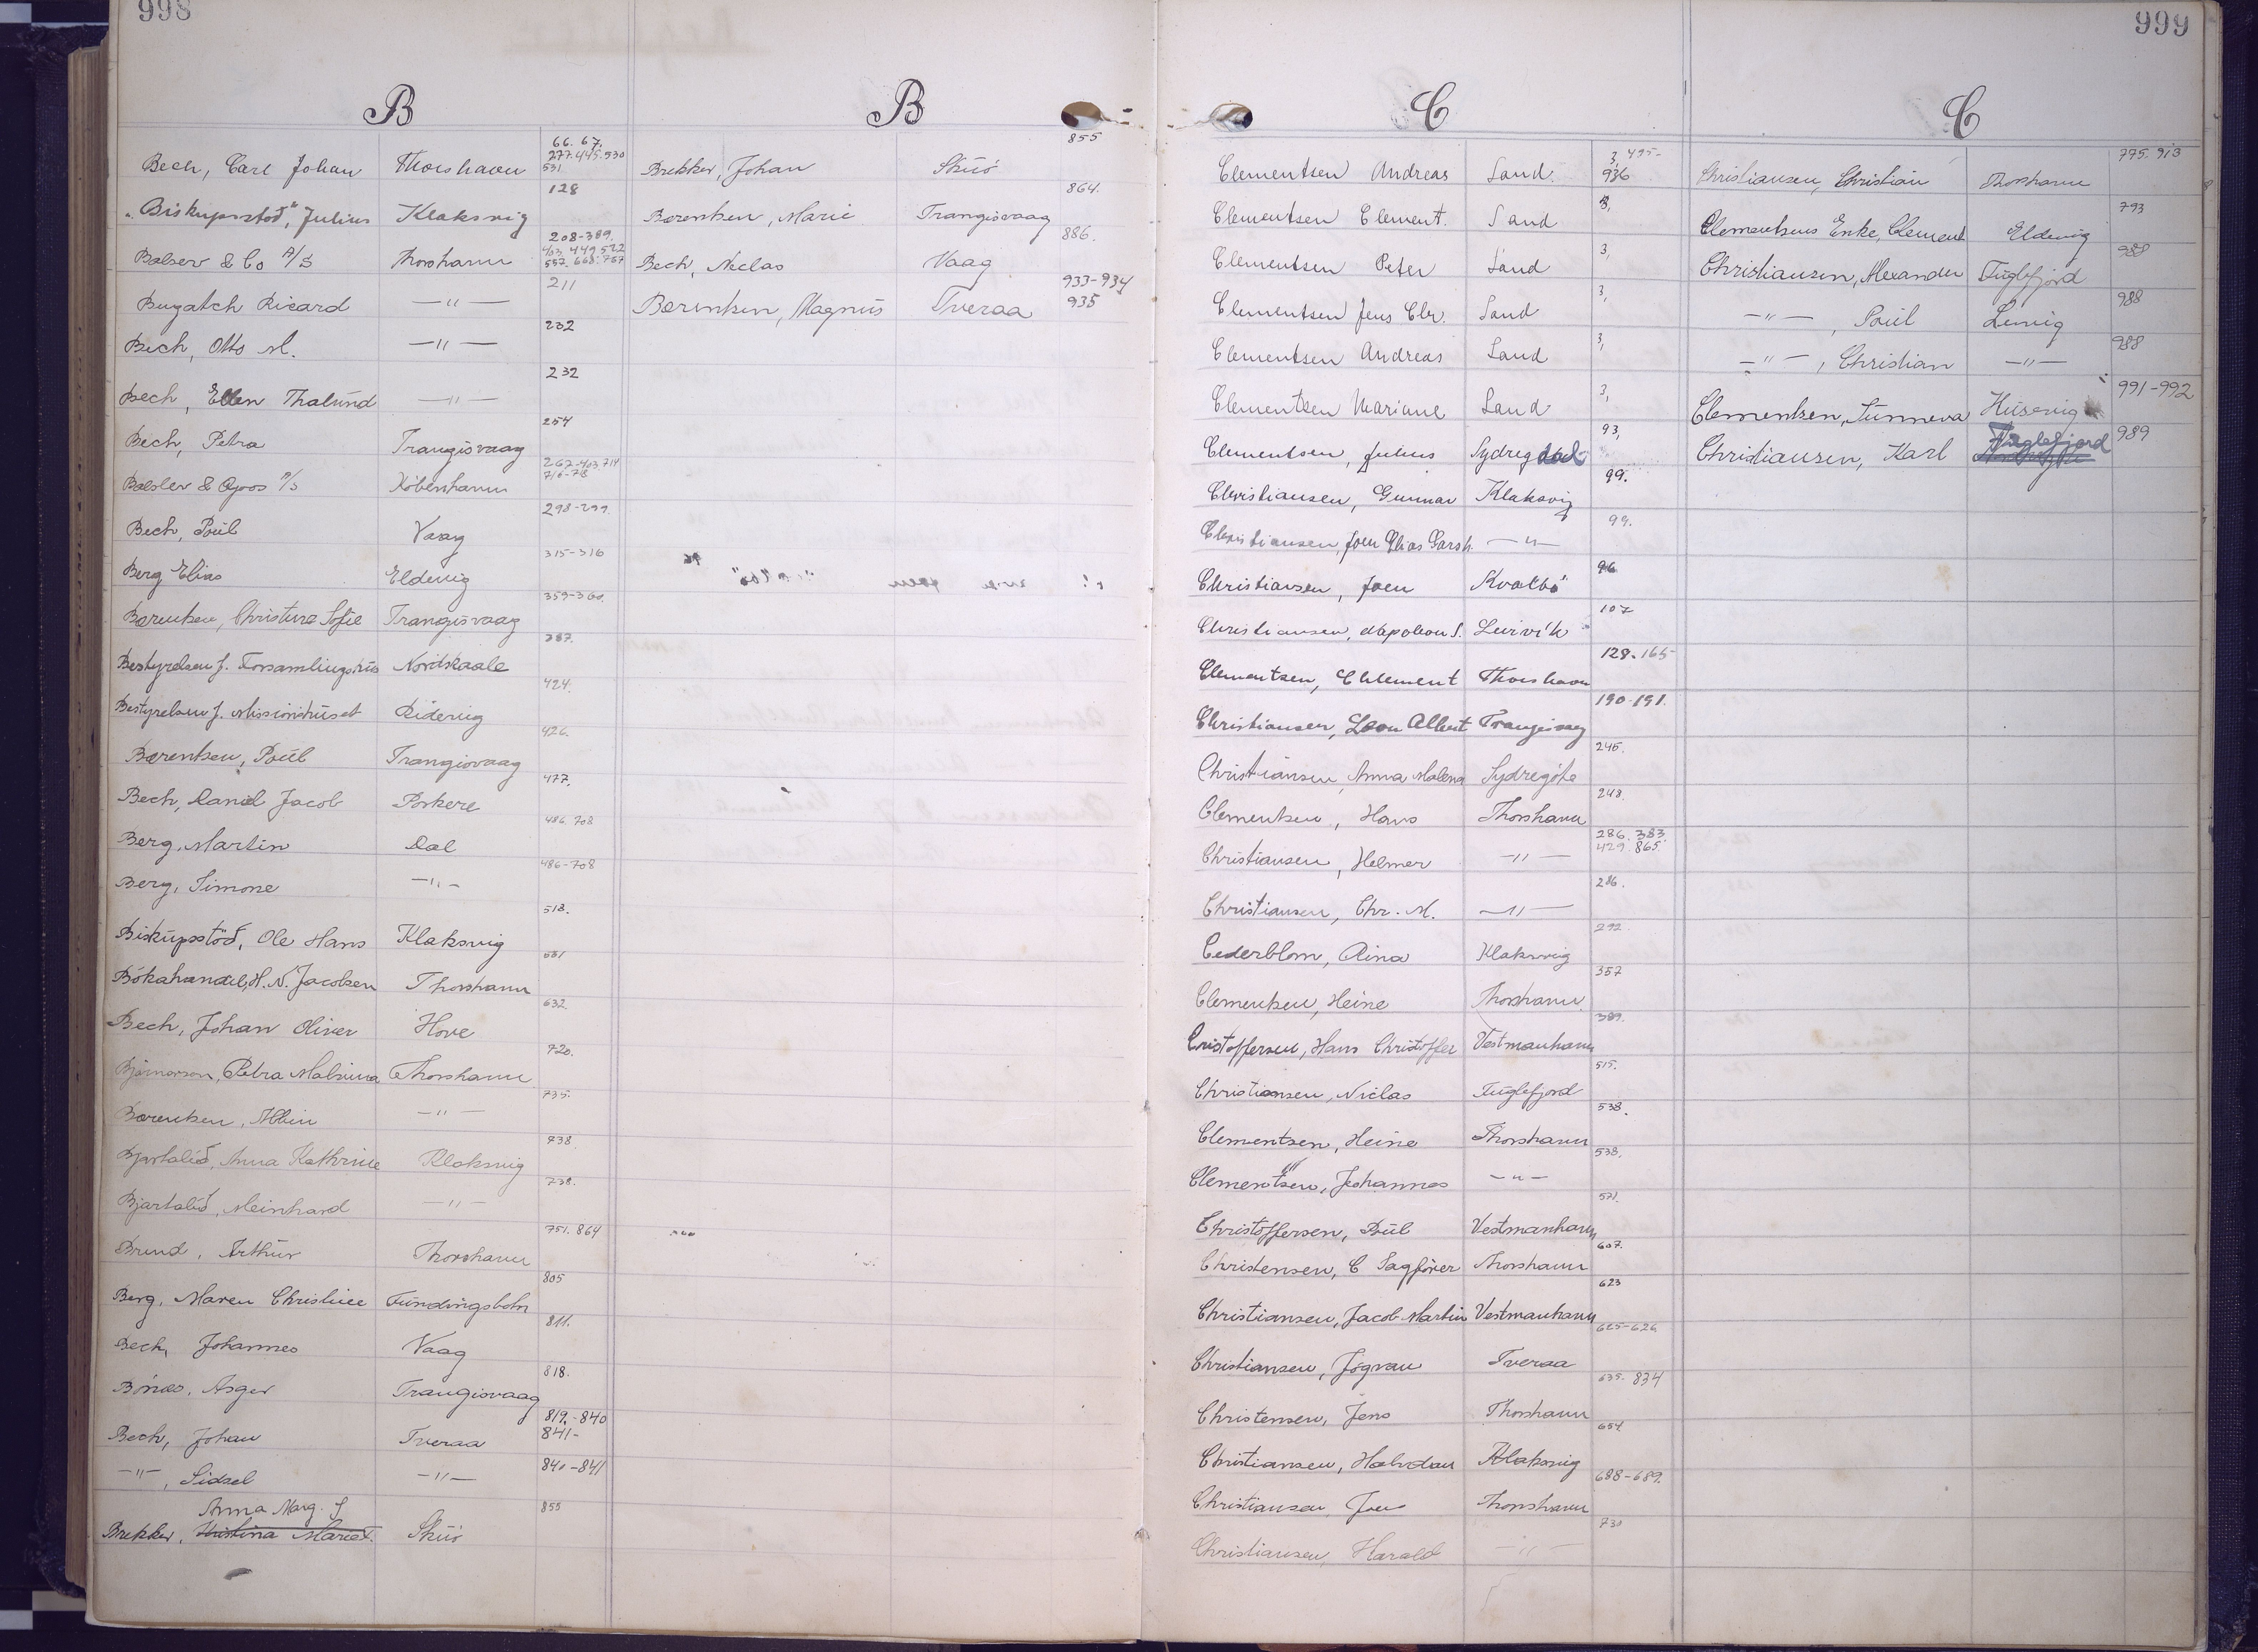 998
B
Bech, Carl Johan Thorshavn 66. 67. 277. 445. 530 531
"Biskupsstøð", Julius Klaksvig 128
Balslev & Co A/S Thorshavn 208-389.
Bugatch Ricard —"— 211
Bech, Otto M. —"— 232
Bech, Ellen Thalund —"— 232
Bech, Petra Trangisvaag 254
Balslev & A/S Köbenhavn 710-718
Bech, Poul Vaag 298-299.
Berg Elias Eldevig 315-316
Bærentsen, Christine Sofie Trangisvaag 359-360.
Bestyrelsen f. Forsamlingshus Nordskaale 387.
Bestyrelsen f. Missionshuset Videvig 424.
Bærentsen, Poul Trangisvaag 426.
Bech, Daniel Jacob Porkere 477.
Berg, Martin Dal 486. 708
Berg, Simone —"— 486-708
Biskupsstöð, Ole Hans Klaksvig 513.
Bókahandil, H. N. Jacobsen Thorshavn 551
Bech, Johan Oliver Hove 632.
Bjarnarson, Petra Malvina Thorshavn 720.
Bærentsen, Albin —"— 735.
Bjartalíð, Anna Kathrine Klaksvig 738
Bjartalíð, Meinhard —"— 738.
Brend, Arthur Thorshavn 751. 864
Berg, Maren Christine Fundingsbotn 805
Bech, Johannes Vaag 811.
Asger Trangisvaag 818.
Bech, Johan Tveraa 819.-840 841-
—"—, Sidsel —"— 840-841
Anna Marg. J
Brekker, Kristina Skúø 855
B
Brekker, Johan Skúø 855
Bærentsen, Marie Trangisvaag 864.
Bech, Niclas Vaag 886.
Bærentsen, Magnus Tveraa 933-934 935
999
C
Clementsen Andreas Sand. 3, 495- 936
Clementsen Clement. Sand 3,
Clementsen Peter Sand 3,
Clementsen Jens Chr. Sand 3,
Clementsen Andreas Sand 3,
Clementsen Mariane Sand 3,
Clementsen, Julius Sydregdal 93,
Christiansen, Gunnar Klaksvig 99.
Christiansen, Joen Elias Garsh. —"— 99.
Christiansen, Joen Kvalbö 96
Christiansen, Napoleon S. Leirvík 107
Clementsen, Chlement Thorshavn 128. 165
Christiansen, Leon Albert Trangisvaag 190-191.
Christiansen, Anna Malena Sydregöte 245.
Clementsen, Hans Thorshavn 248.
Christiansen, Helmer —"— 286. 383. 429. 865.
Christiansen, Chr. M. —"— 286.
Cederblom, Aina Klaksvig 292
Clementsen, Heine Thorshavn. 357
Cristoffersen, Hans Christoffer Vestmanhavn 389.
Christiansen, Niclas Fuglefjord 515.
Clementsen, Heine Thorshavn 538.
Clementsen, Johannes —"— 538.
Christoffersen, Poul Vestmanhavn 571.
Christensen, C Sagförer Thorshavn 607.
Christiansen, Jacob Martin Vestmanhavn 623
Christiansen, Jógvan Tveraa 625-626
Christensen, Jens Thorshavn 635. 834
Christiansen, Halvdan Klaksvig 654.
Christiansen, Joen Thorshavn 688-689.
Christiansen, Harald —"— 730
C
Christiansen, Christian Thorshavn 775. 913
Clementsens Enke, Clement Eldevig 793
Christiansen, Alexander Fuglefjord 988
—"—, Poul Lervig 988
—"—, Christian —"— 988
Clementsen, Sunneva Húsevig 991-992
Christiansen, Karl Fuglefjord 989